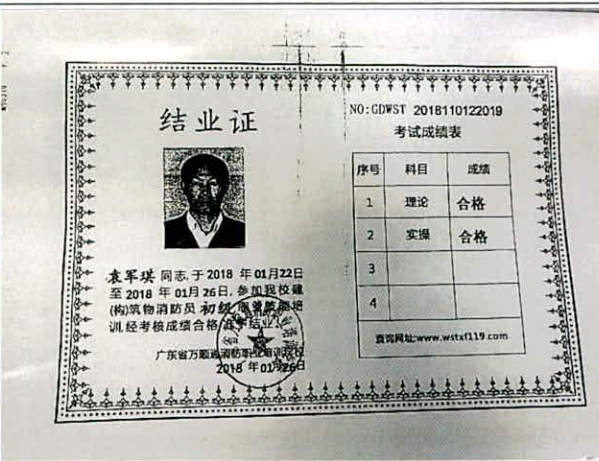 结业证
袁军琪 同志,于 2018 年 01月22日
至 2018 年 01月26日,参加我校建
(构)筑物消防员 初级 职业技能培
训,经考核成绩合格,准予结业!
广东省万顺通消防职业培训学校
2018 年 01月26日
NO:GDWST 2018110122019
考试成绩表
序号 科目 成绩
1 理论 合格
2 实操 合格
3
4
查询网址:www.wstxf119.com